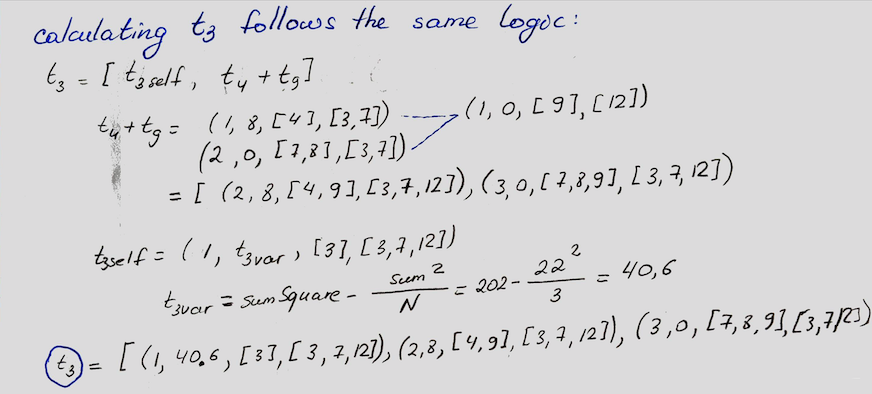 calculating t3 follows the same logic:
t3 = [ t3self , t4 + t9 ]
t4 + t9 = (1, 8, [4], [3,7]) (1, 0, [9], [12])
(2, 0, [7,8], [3,7])
= [ (2, 8, [4,9], [3,7,12]), (3, 0, [7,8,9], [3,7,12])
t3self = (1, t3var, [3], [3,7,12])
t3var = sumSquare - sum² / N = 202 - 22² / 3 = 40,6
t3 = [ (1, 40.6, [3], [3,7,12]), (2,8, [4,9], [3,7,12]), (3,0, [7,8,9], [3,7,12])